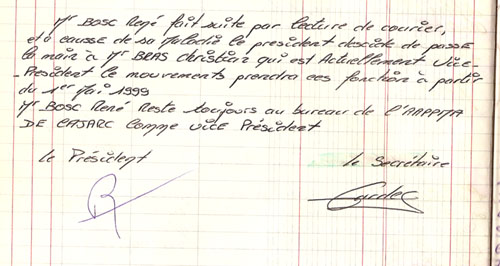 Mr BOSC René fait suite par lecture de courier,
et à cause de sa maladie le président descide de passé
la main à Mr BRAS Christian qui est Actuellement Vice-
Président le mouvements prendra ces fonction à partir
du 1er Mai 1999
Mr BOSC René Reste toujours au bureau de l'AAPPMA
DE CAJARC Comme vice Président
le Président
le Secrétaire